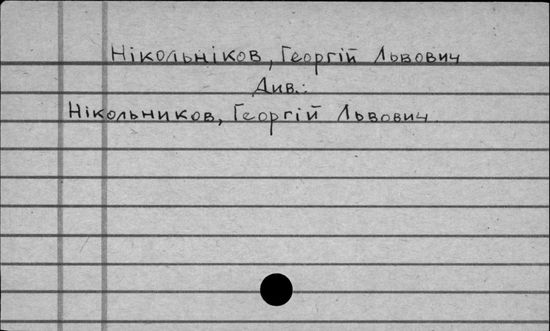 Нікольніков, Георгій Львович
Див.:
Нікольников, Георгій Львович